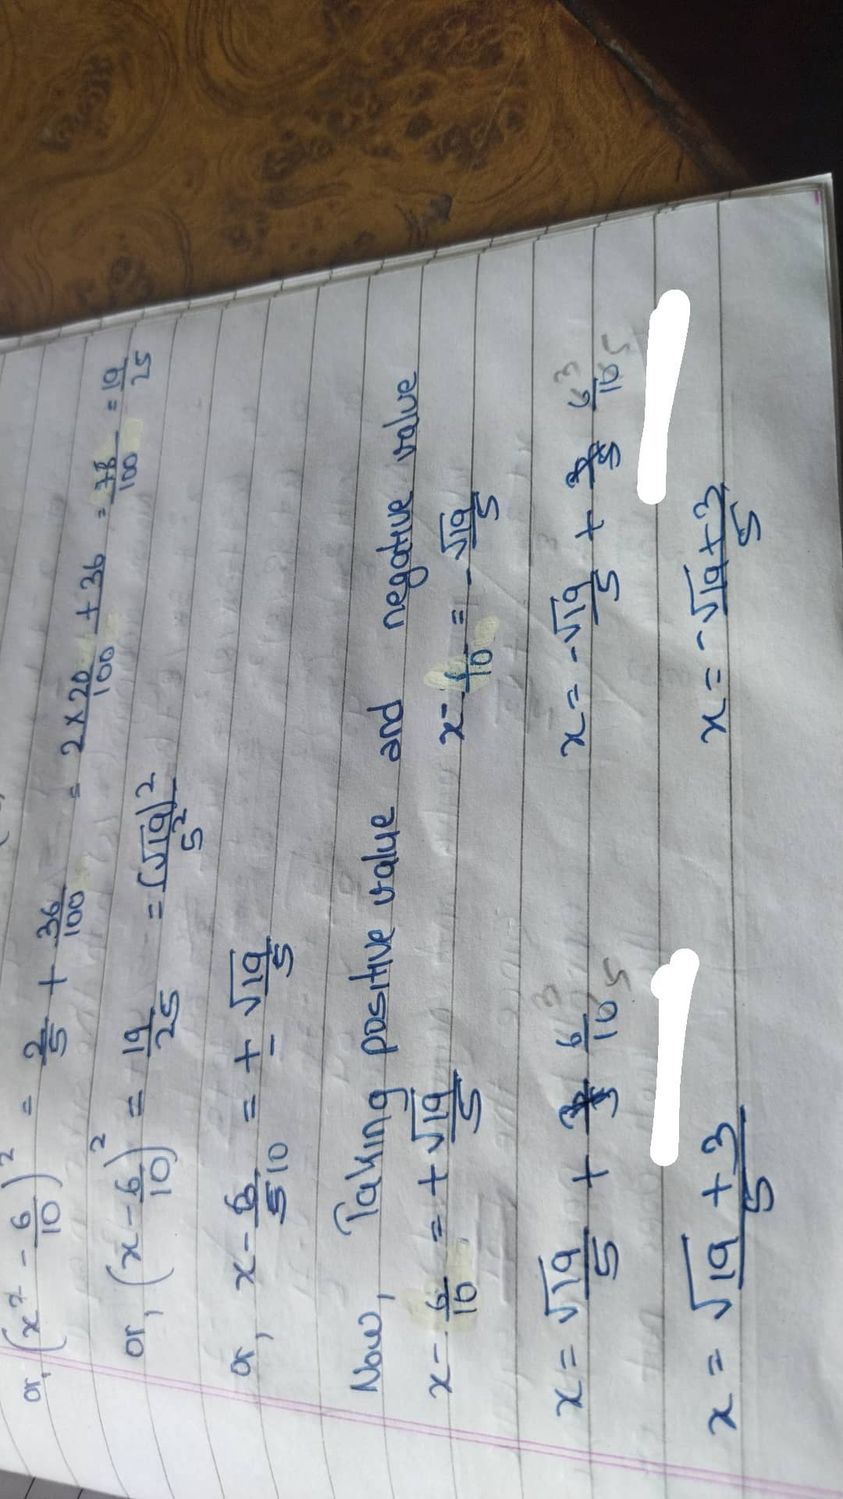 or, (x² - 6/10)² = 2/5 + 36/100 = 2×20/100 + 36 = 76/100 = 19/25
or, (x - 6/10)² = 19/25 = (√19)²/5²
or, x - 6/10 = ± √19/5
Now, Taking positive value and negative value
x - 6/10 = + √19/5 x - 6/10 = - √19/5
x = √19/5 + 6/10 3 5 x = - √19/5 + 6/10 3 5
x = √19 + 3/5 x = - √19 + 3/5